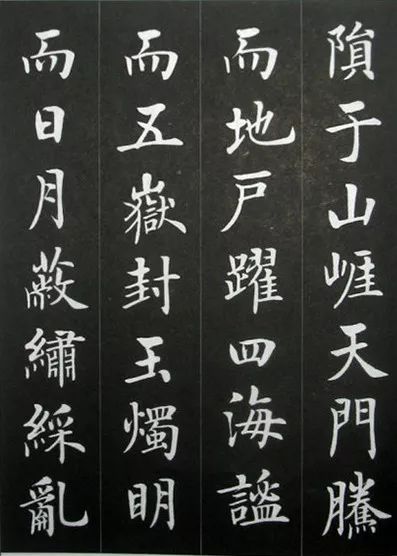 隕于山崕天門騰
而地户躍四海謐
而五嶽封玉燭明
而日月蔽繡綵亂